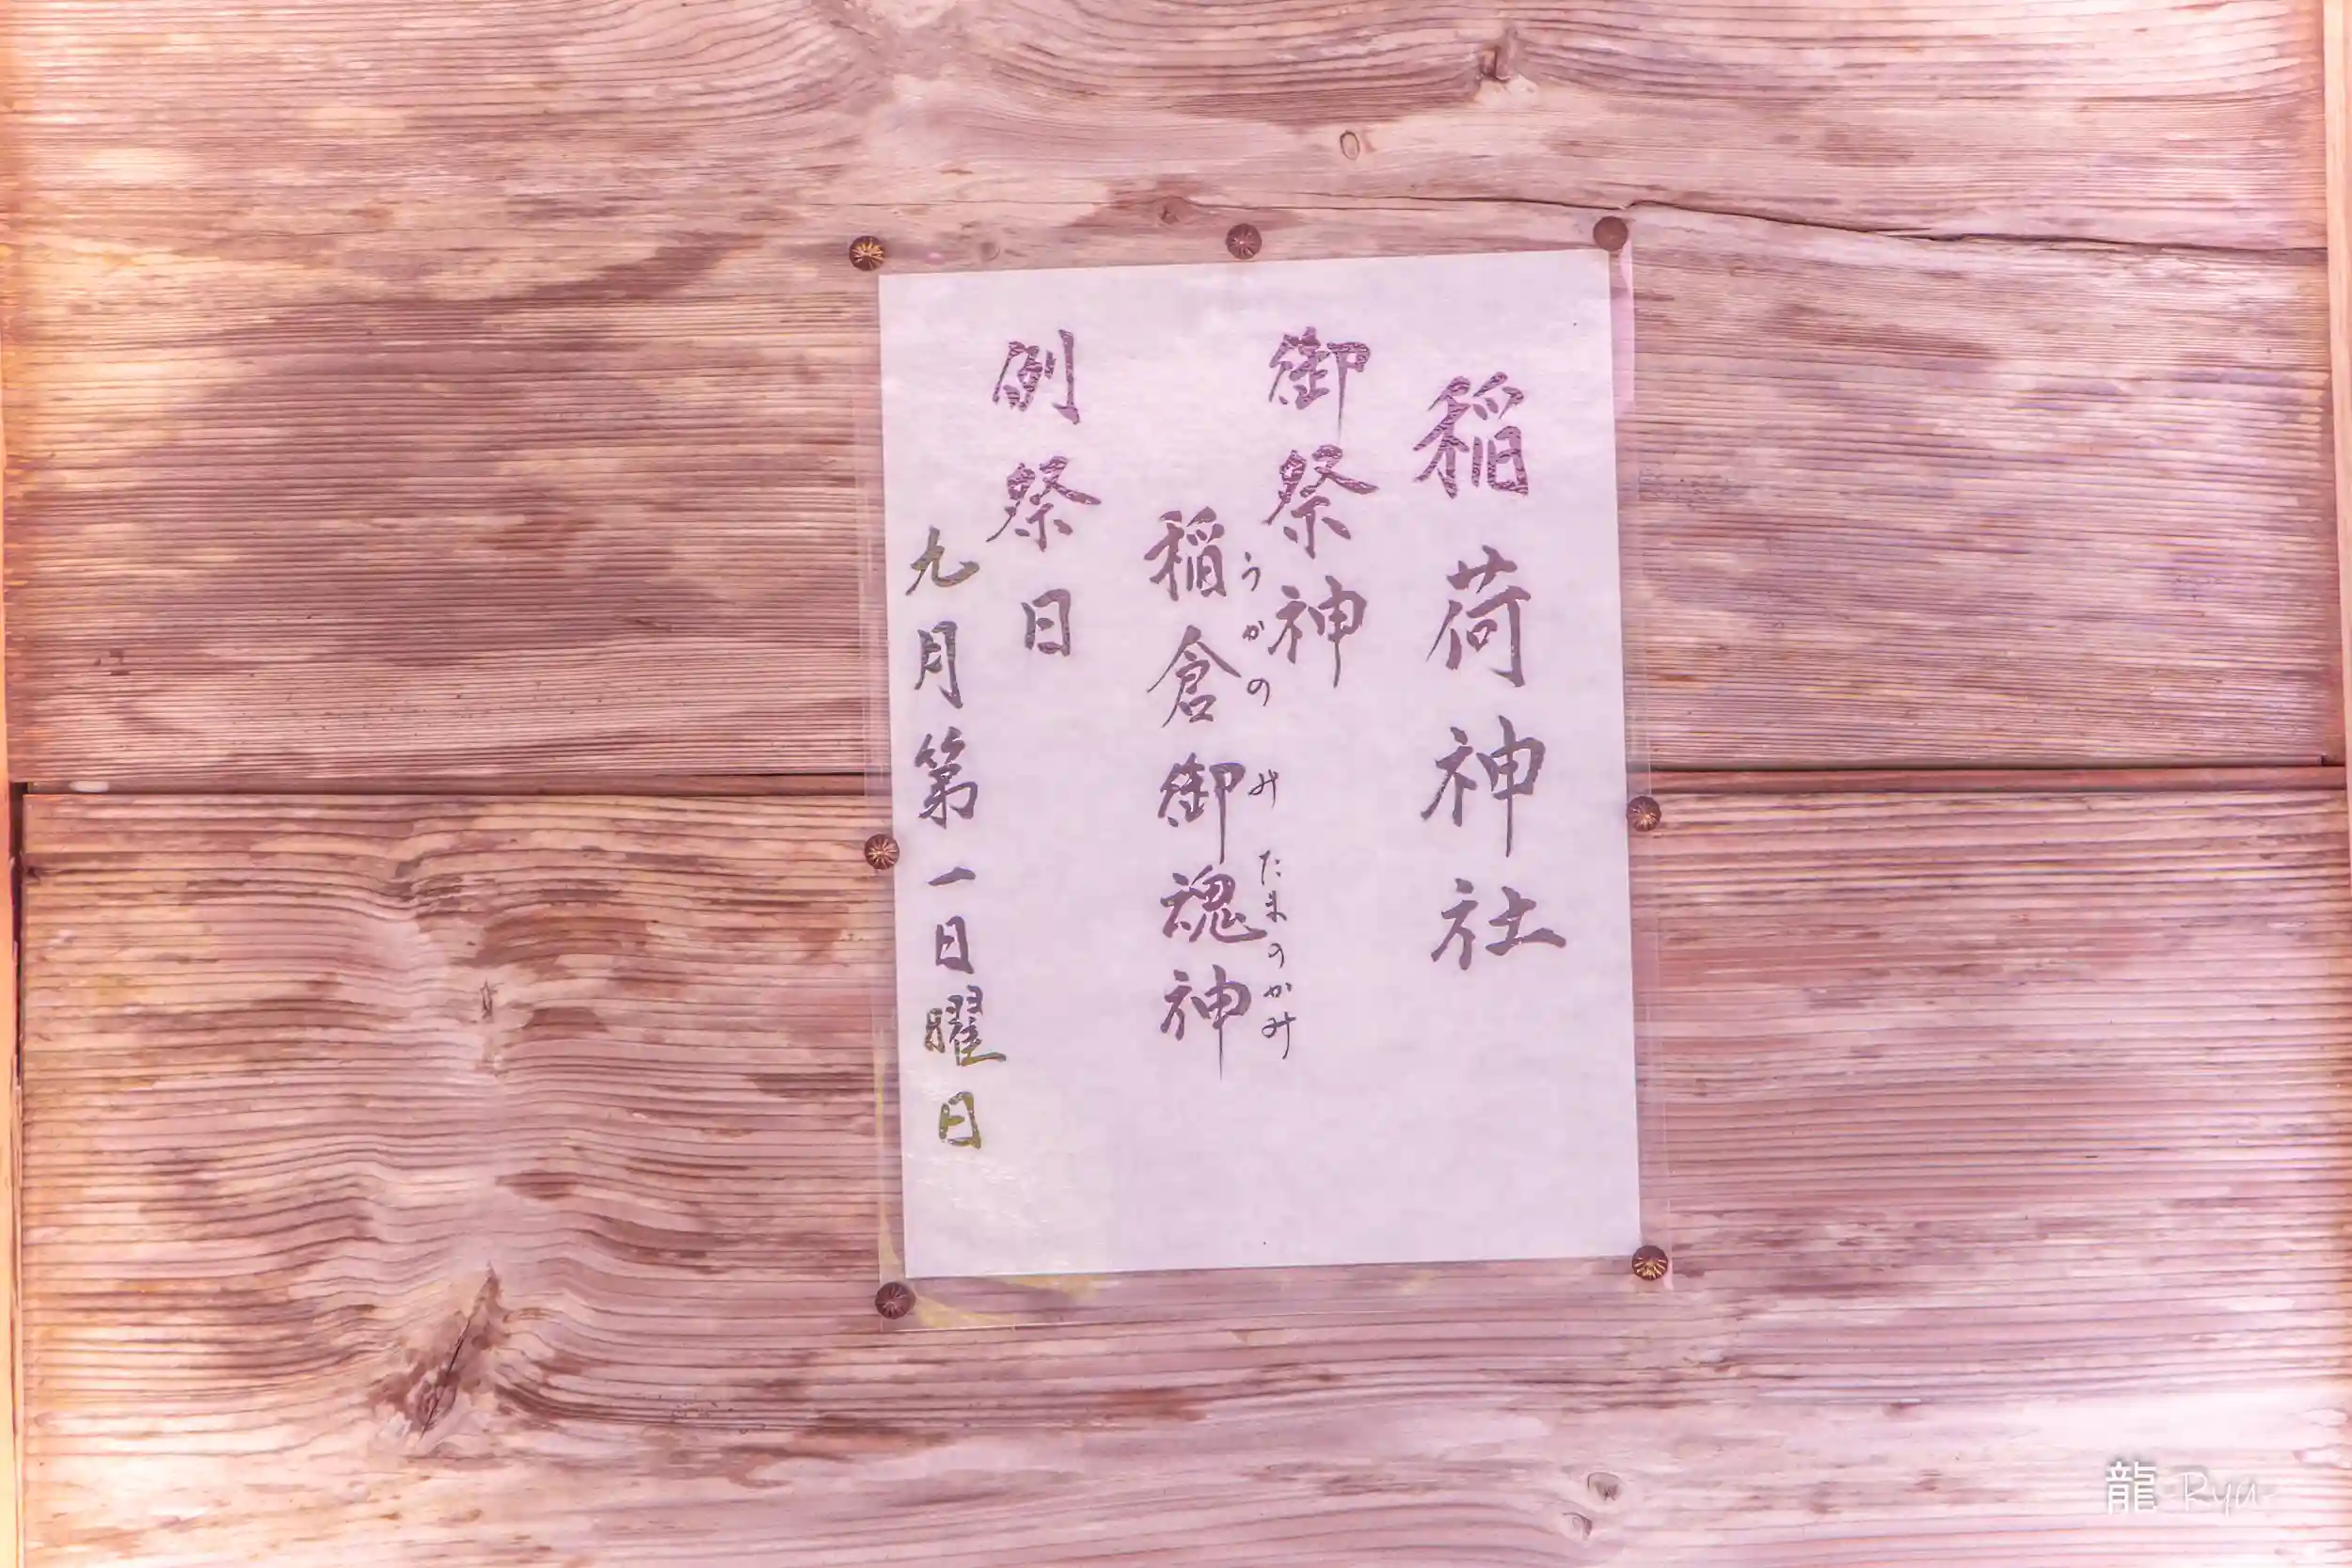 稲荷神社
御祭神
稲倉御魂神
うかのみたまのかみ
例祭日
九月第一日曜日
龍 -Ryu-